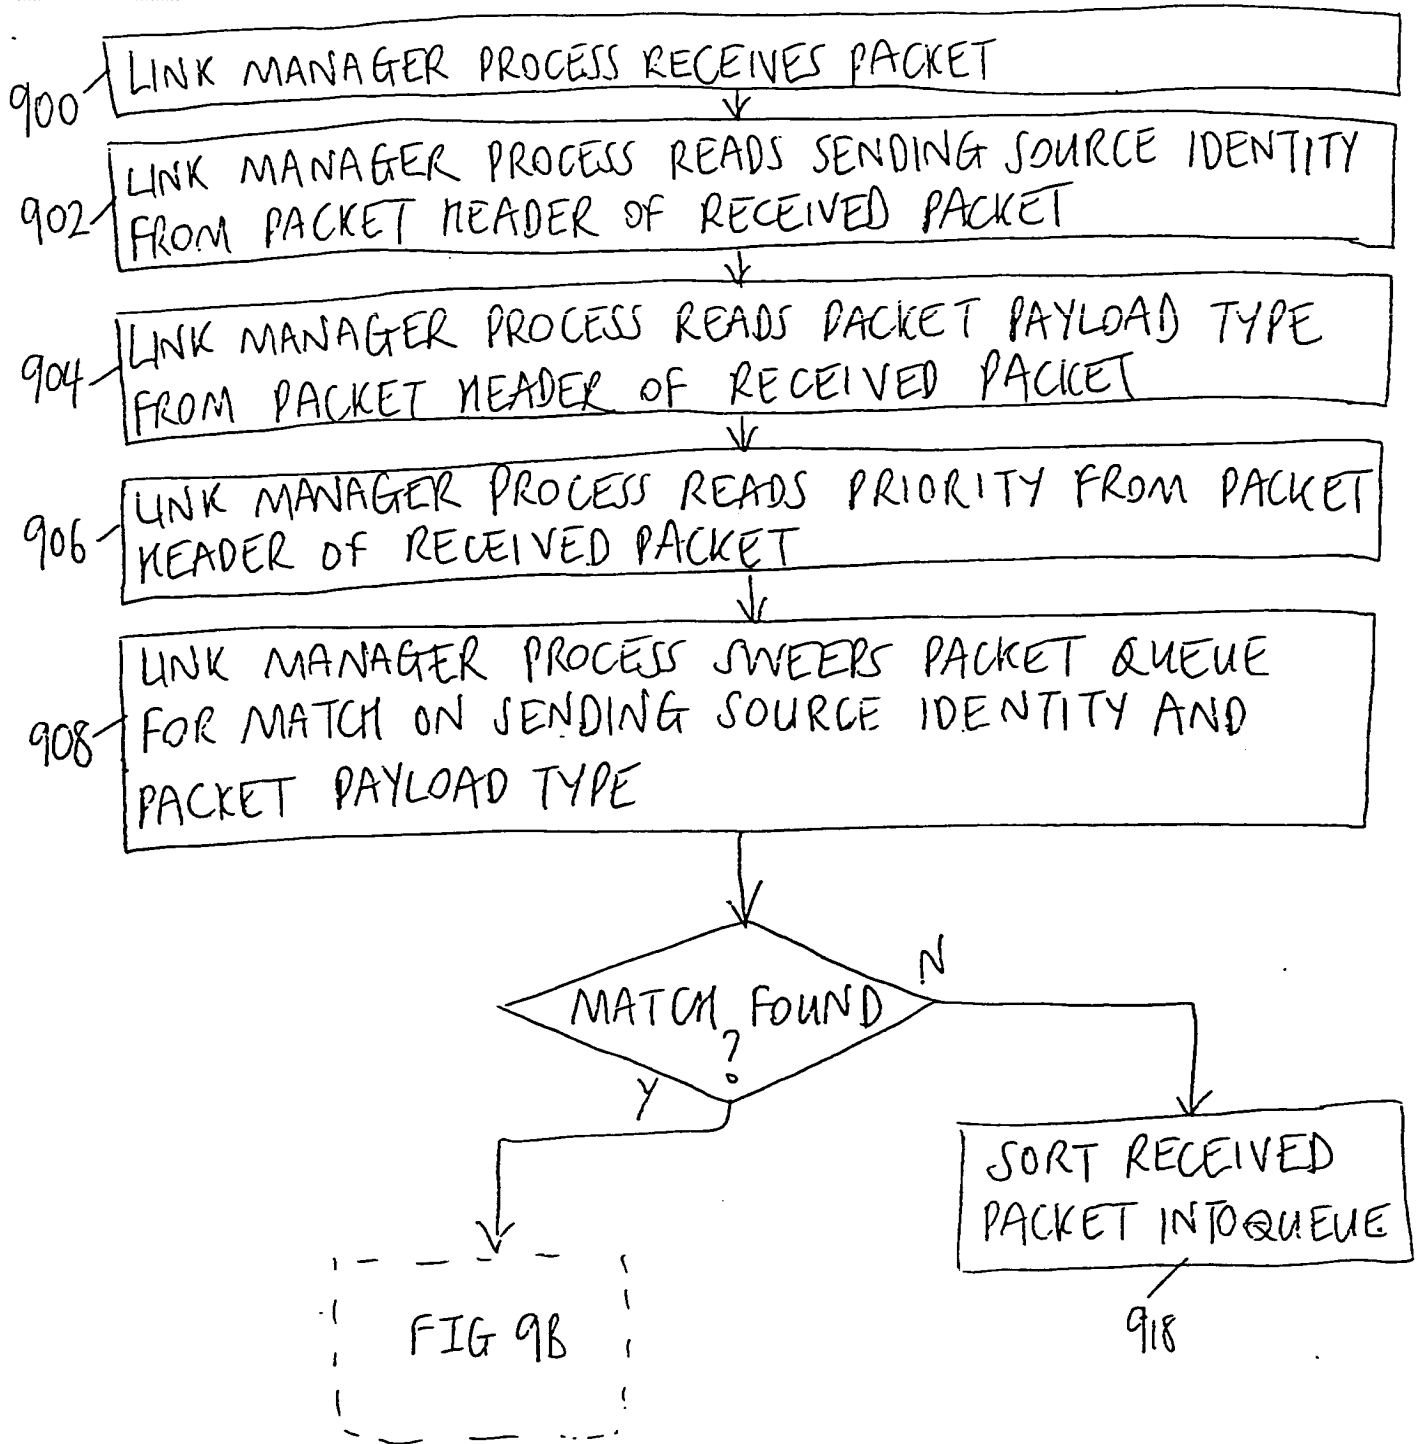 LINK MANAGER PROCESS RECEIVES PACKET
900
LINK MANAGER PROCESS READS SENDING SOURCE IDENTITY
FROM PACKET HEADER OF RECEIVED PACKET
902
LINK MANAGER PROCESS READS PACKET PAYLOAD TYPE
FROM PACKET HEADER OF RECEIVED PACKET
904
LINK MANAGER PROCESS READS PRIORITY FROM PACKET
HEADER OF RECEIVED PACKET
906
LINK MANAGER PROCESS SWEEPS PACKET QUEUE
FOR MATCH ON SENDING SOURCE IDENTITY AND
PACKET PAYLOAD TYPE
908
MATCH FOUND
?
N
Y
SORT RECEIVED
PACKET INTO QUEUE
918
FIG 9B